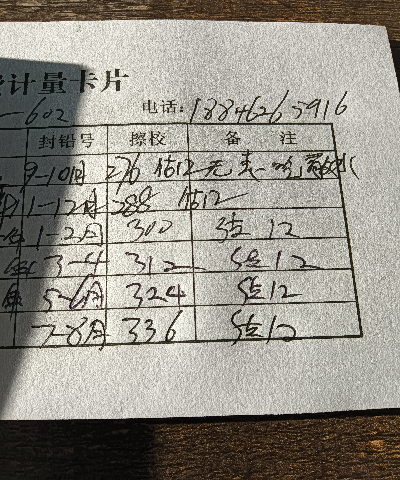 计量卡片
-602 电话:18846265916
封铅号 擦校 备注
9-10月 276 估12 无表
11-12月 288 估12
1-2月 300 估12
3-4 312 估12
5-6月 324 估12
7-8月 336 估12